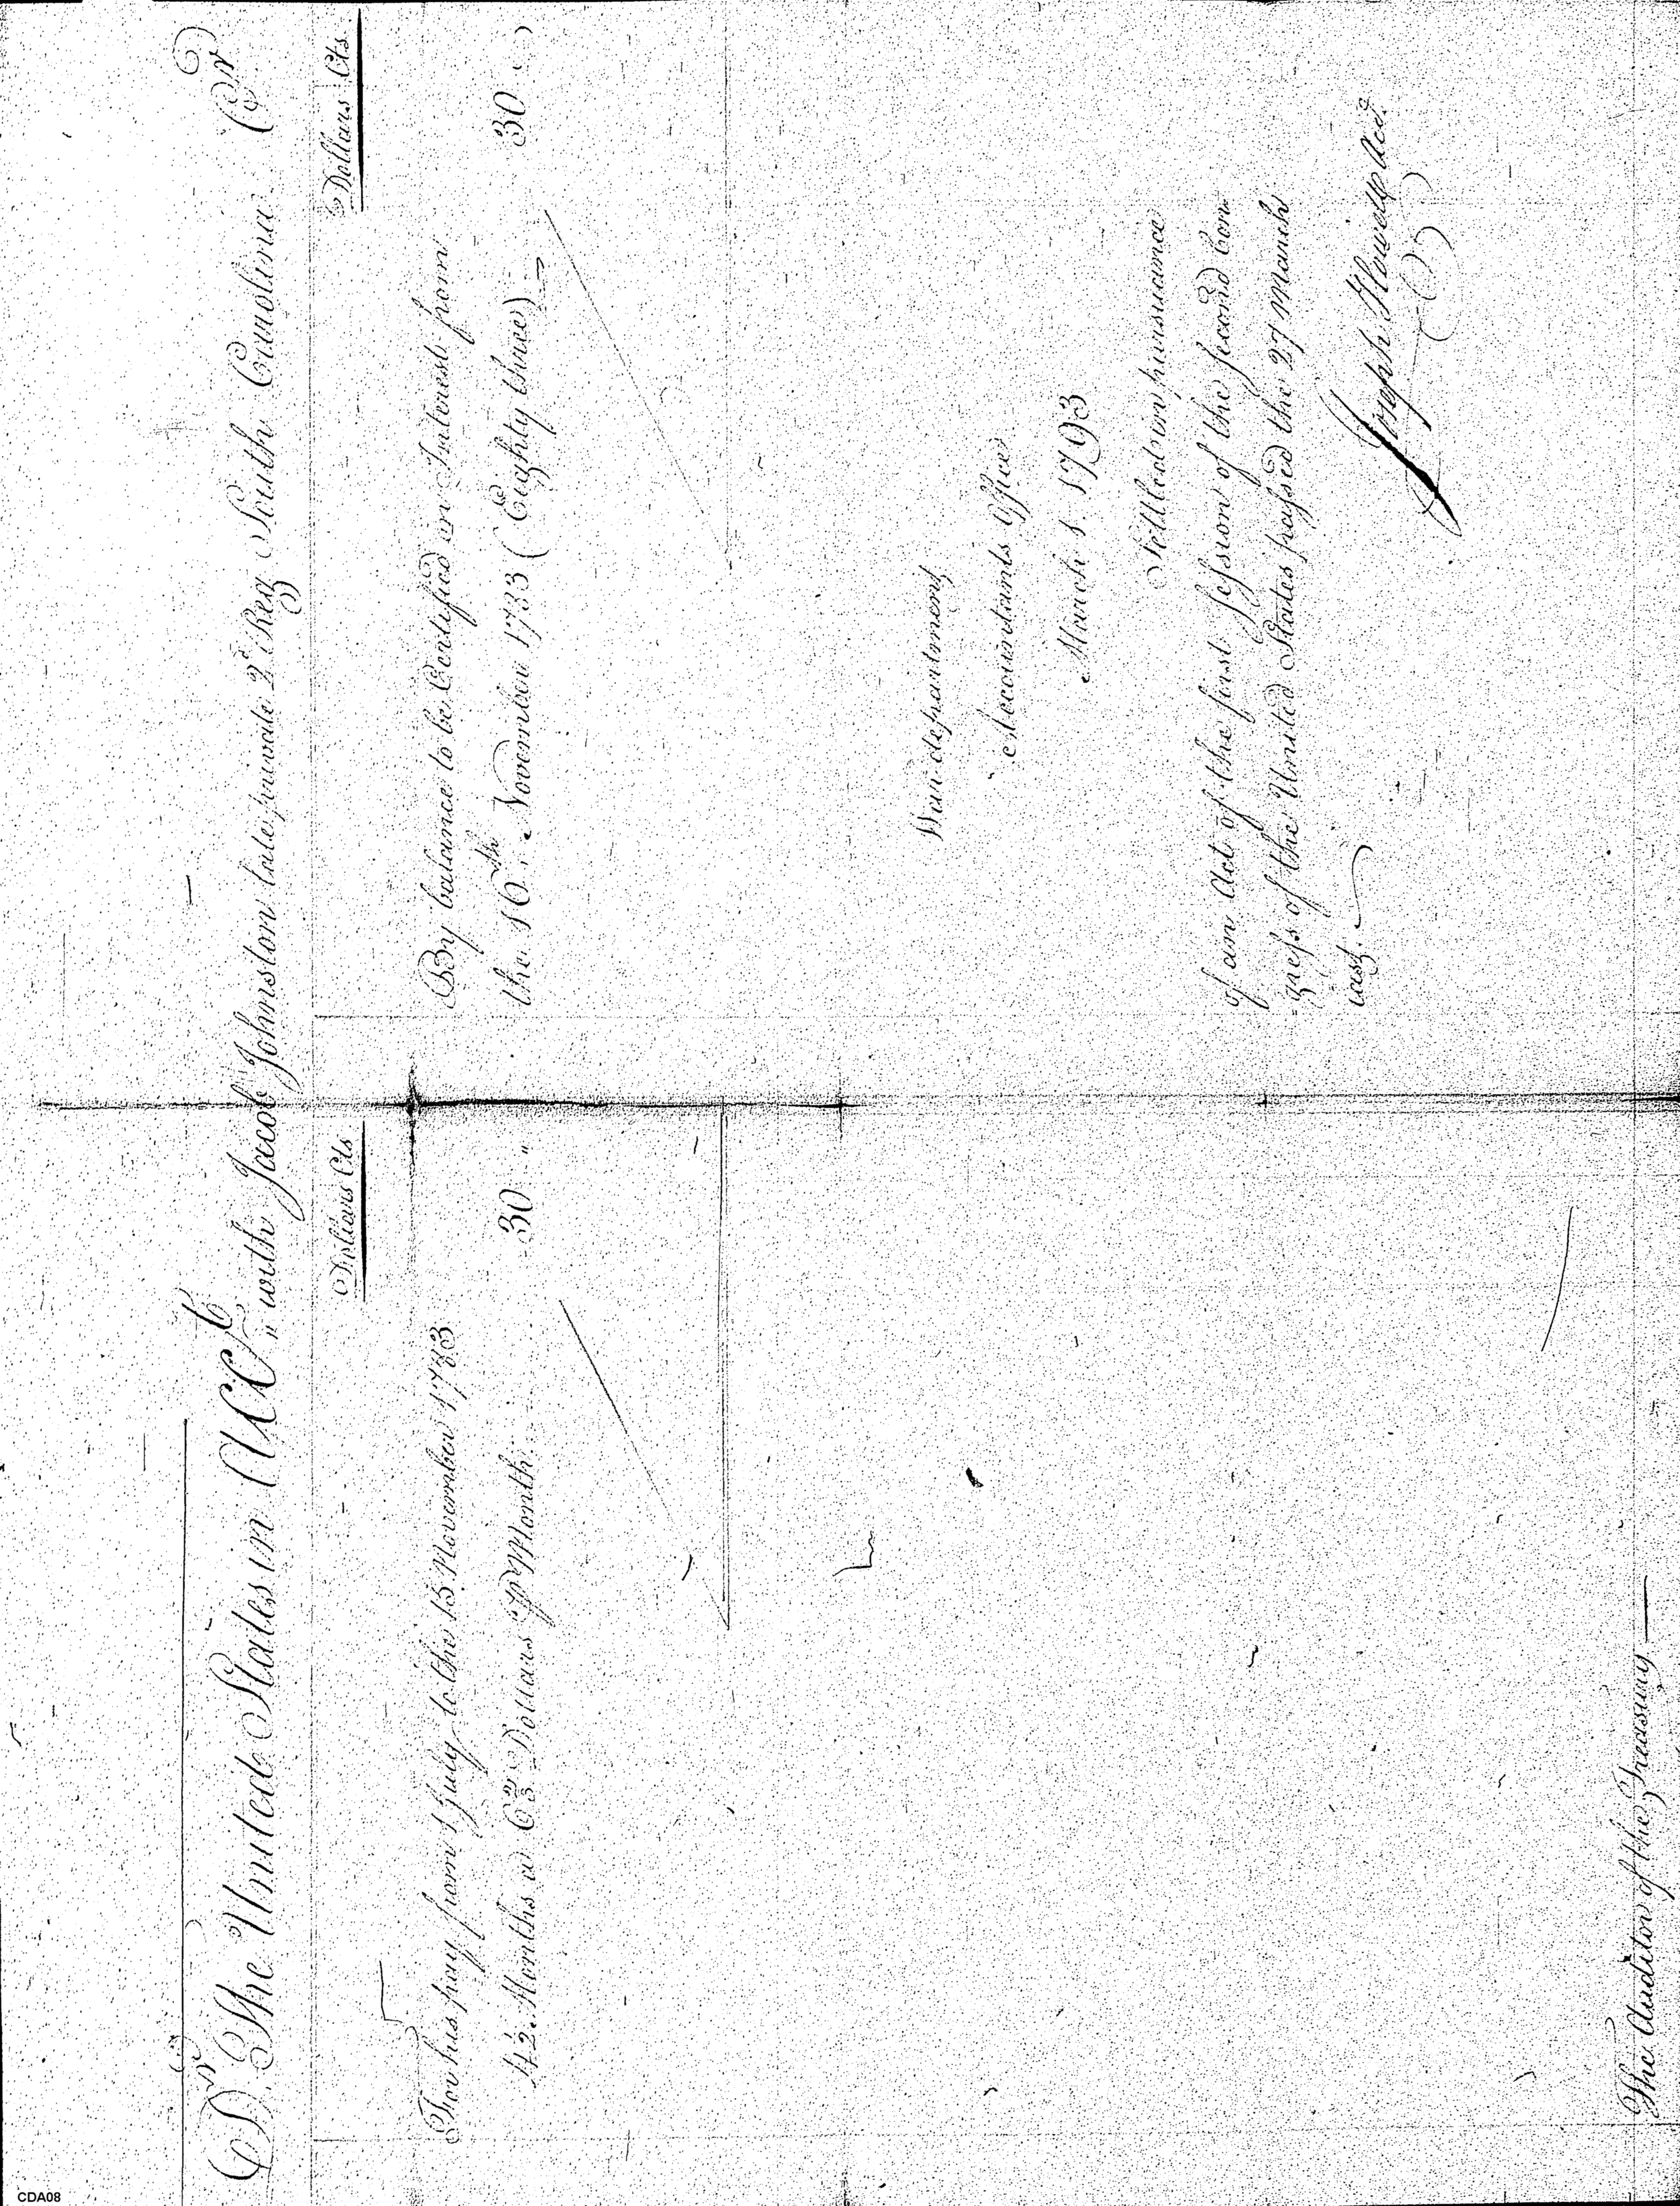 Dr. The United States in Acct. with Jacob Johnston late private 2d. Reg South Carolina Cr
Dollars Cts
For his pay from 1 July to the 15 November 1783
4½ Months at 6⅔ Dollars ⅌ Month
30 "
Dollars Cts
By balance to be Certified on Interest from
the 16th. November 1783 (Eighty three)
30
War department
Accountants Office
March 1 1793
Settled in pursuance
of an Act of the first Session of the second Con
=gress of the United States passed the 27 March
last.
Joseph Howell Acct.
The Auditor of the Treasury
CDA08